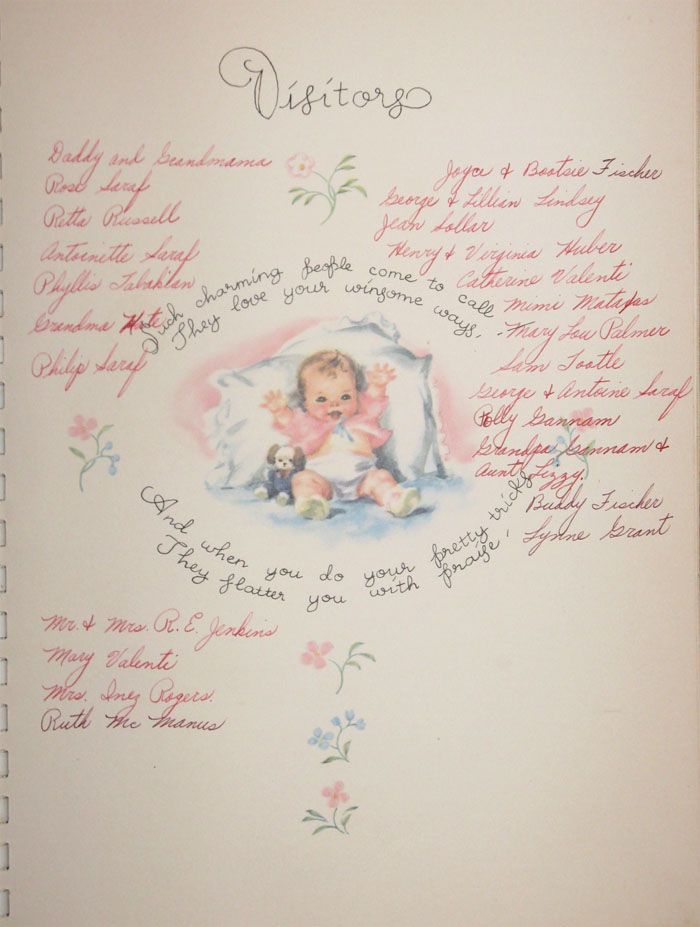 Visitors
Daddy and Grandmama
Rose Saraf
Retta Russell
Antoinette Saraf
Phyllis Tabaklan
Grandma Kate
Philip Saraf
Joyce & Bootsie Fischer
George & Lillian Lindsey
Jean Sollar
Henry & Virginia Huber
Catherine Valenti
Mimi Matafas
Mary Lou Palmer
Sam Tootle
George & Antoine Saraf
Polly Gannam
Grandpa Gannam &
Aunt Lizzy.
Buddy Fischer
Lynne Grant
Such charming people come to call
They love your winsome ways.
And when you do your pretty tricks
They flatter you with praise.
Mr. & Mrs. R. E. Jenkins
Mary Valenti
Mrs. Inez Rogers.
Ruth Mc Manus